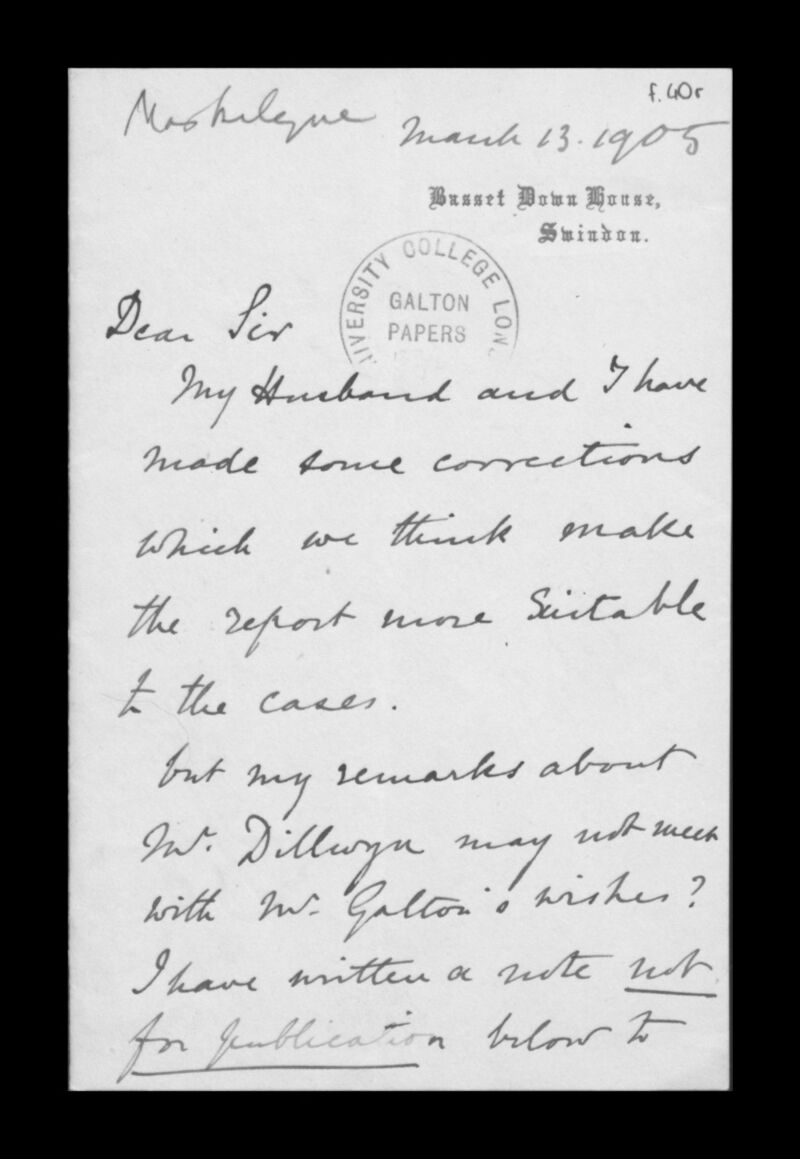 f.40r
Maskelyne
March 13. 1905
Basset Down House,
Swindon.
UNIVERSITY COLLEGE LON
GALTON
PAPERS
Dear Sir
My Husband and I have
made some corrections
which we think make
the report more suitable
to the cases.
but my remarks about
Mr. Dillwyn may not meet
with Mr. Galton's wishes?
I have written a note not
for publication below to